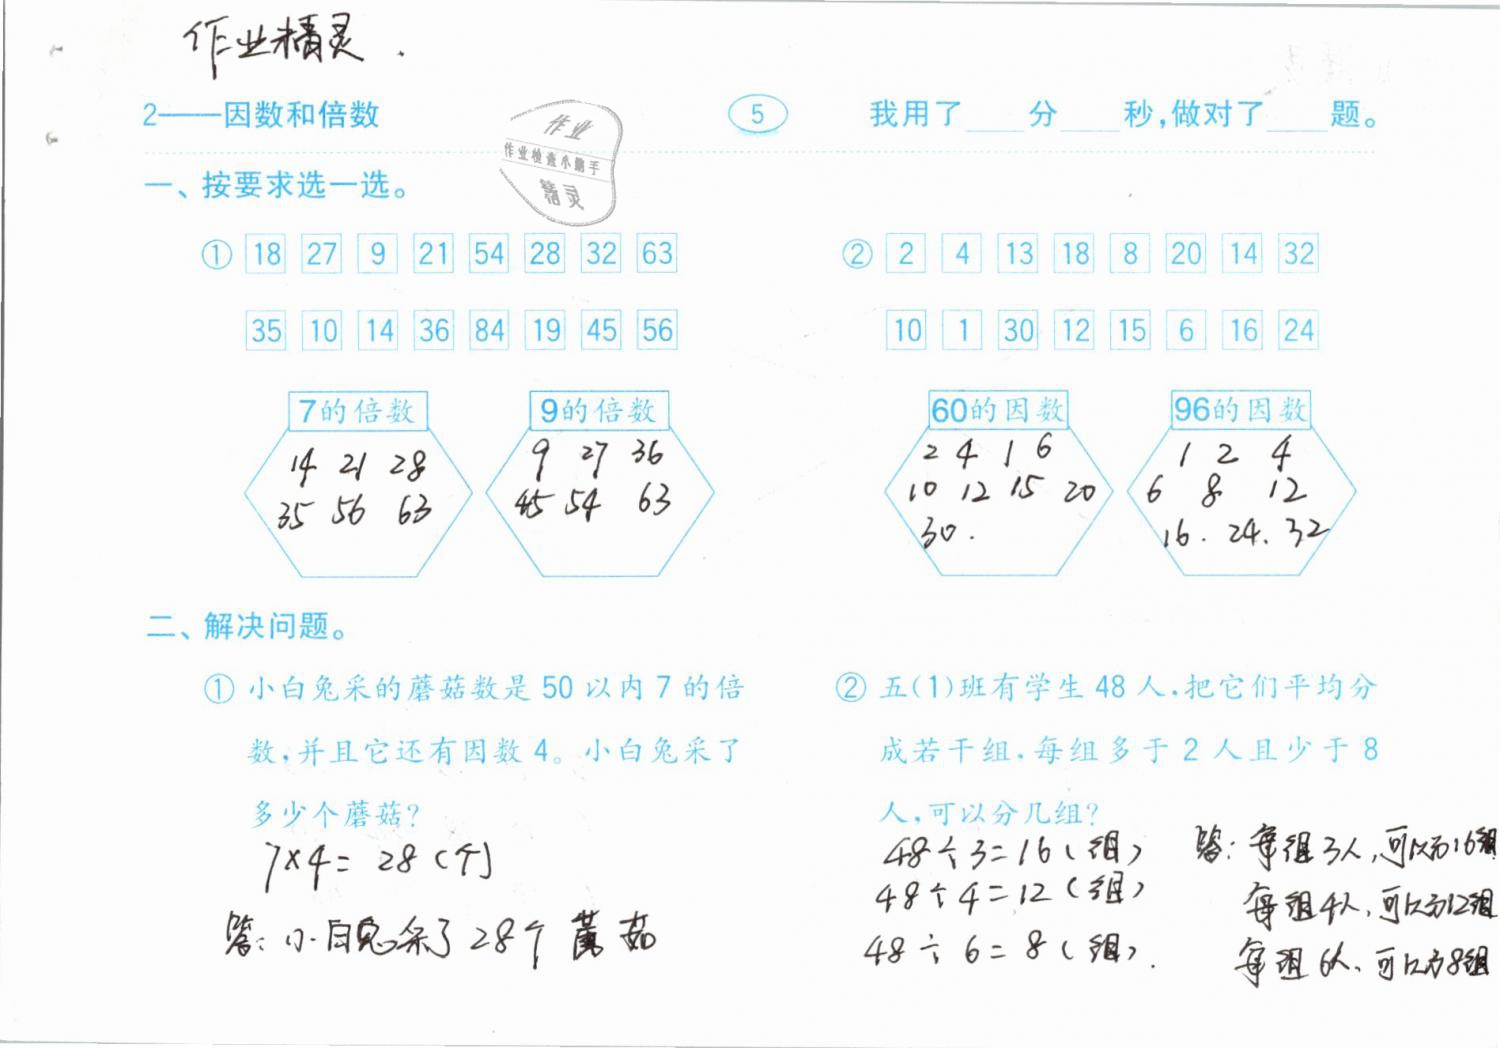 作业精灵.
2——因数和倍数
5
我用了___分___秒,做对了___题。
作业
作业检查小助手
精灵
一、按要求选一选。
① 18 27 9 21 54 28 32 63
35 10 14 36 84 19 45 56
7的倍数
14 21 28
35 56 63
9的倍数
9 27 36
45 54 63
② 2 4 13 18 8 20 14 32
10 1 30 12 15 6 16 24
60的因数
2 4 1 6
10 12 15 20
30.
96的因数
1 2 4
6 8 12
16. 24. 32
二、解决问题。
① 小白兔采的蘑菇数是 50 以内 7 的倍
数,并且它还有因数 4。小白兔采了
多少个蘑菇?
7×4=28(个)
答:小白兔采了28个蘑菇
② 五(1)班有学生 48 人,把它们平均分
成若干组,每组多于 2 人且少于 8
人,可以分几组?
48÷3=16(组)
48÷4=12(组)
48÷6=8(组).
答:每组3人,可以分16组
每组4人,可以分12组
每组6人,可以分8组